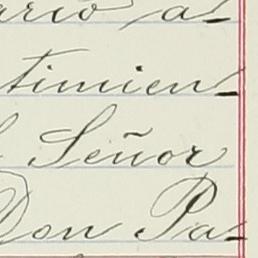 ario a-
timien-
l Señor
Don Pa-